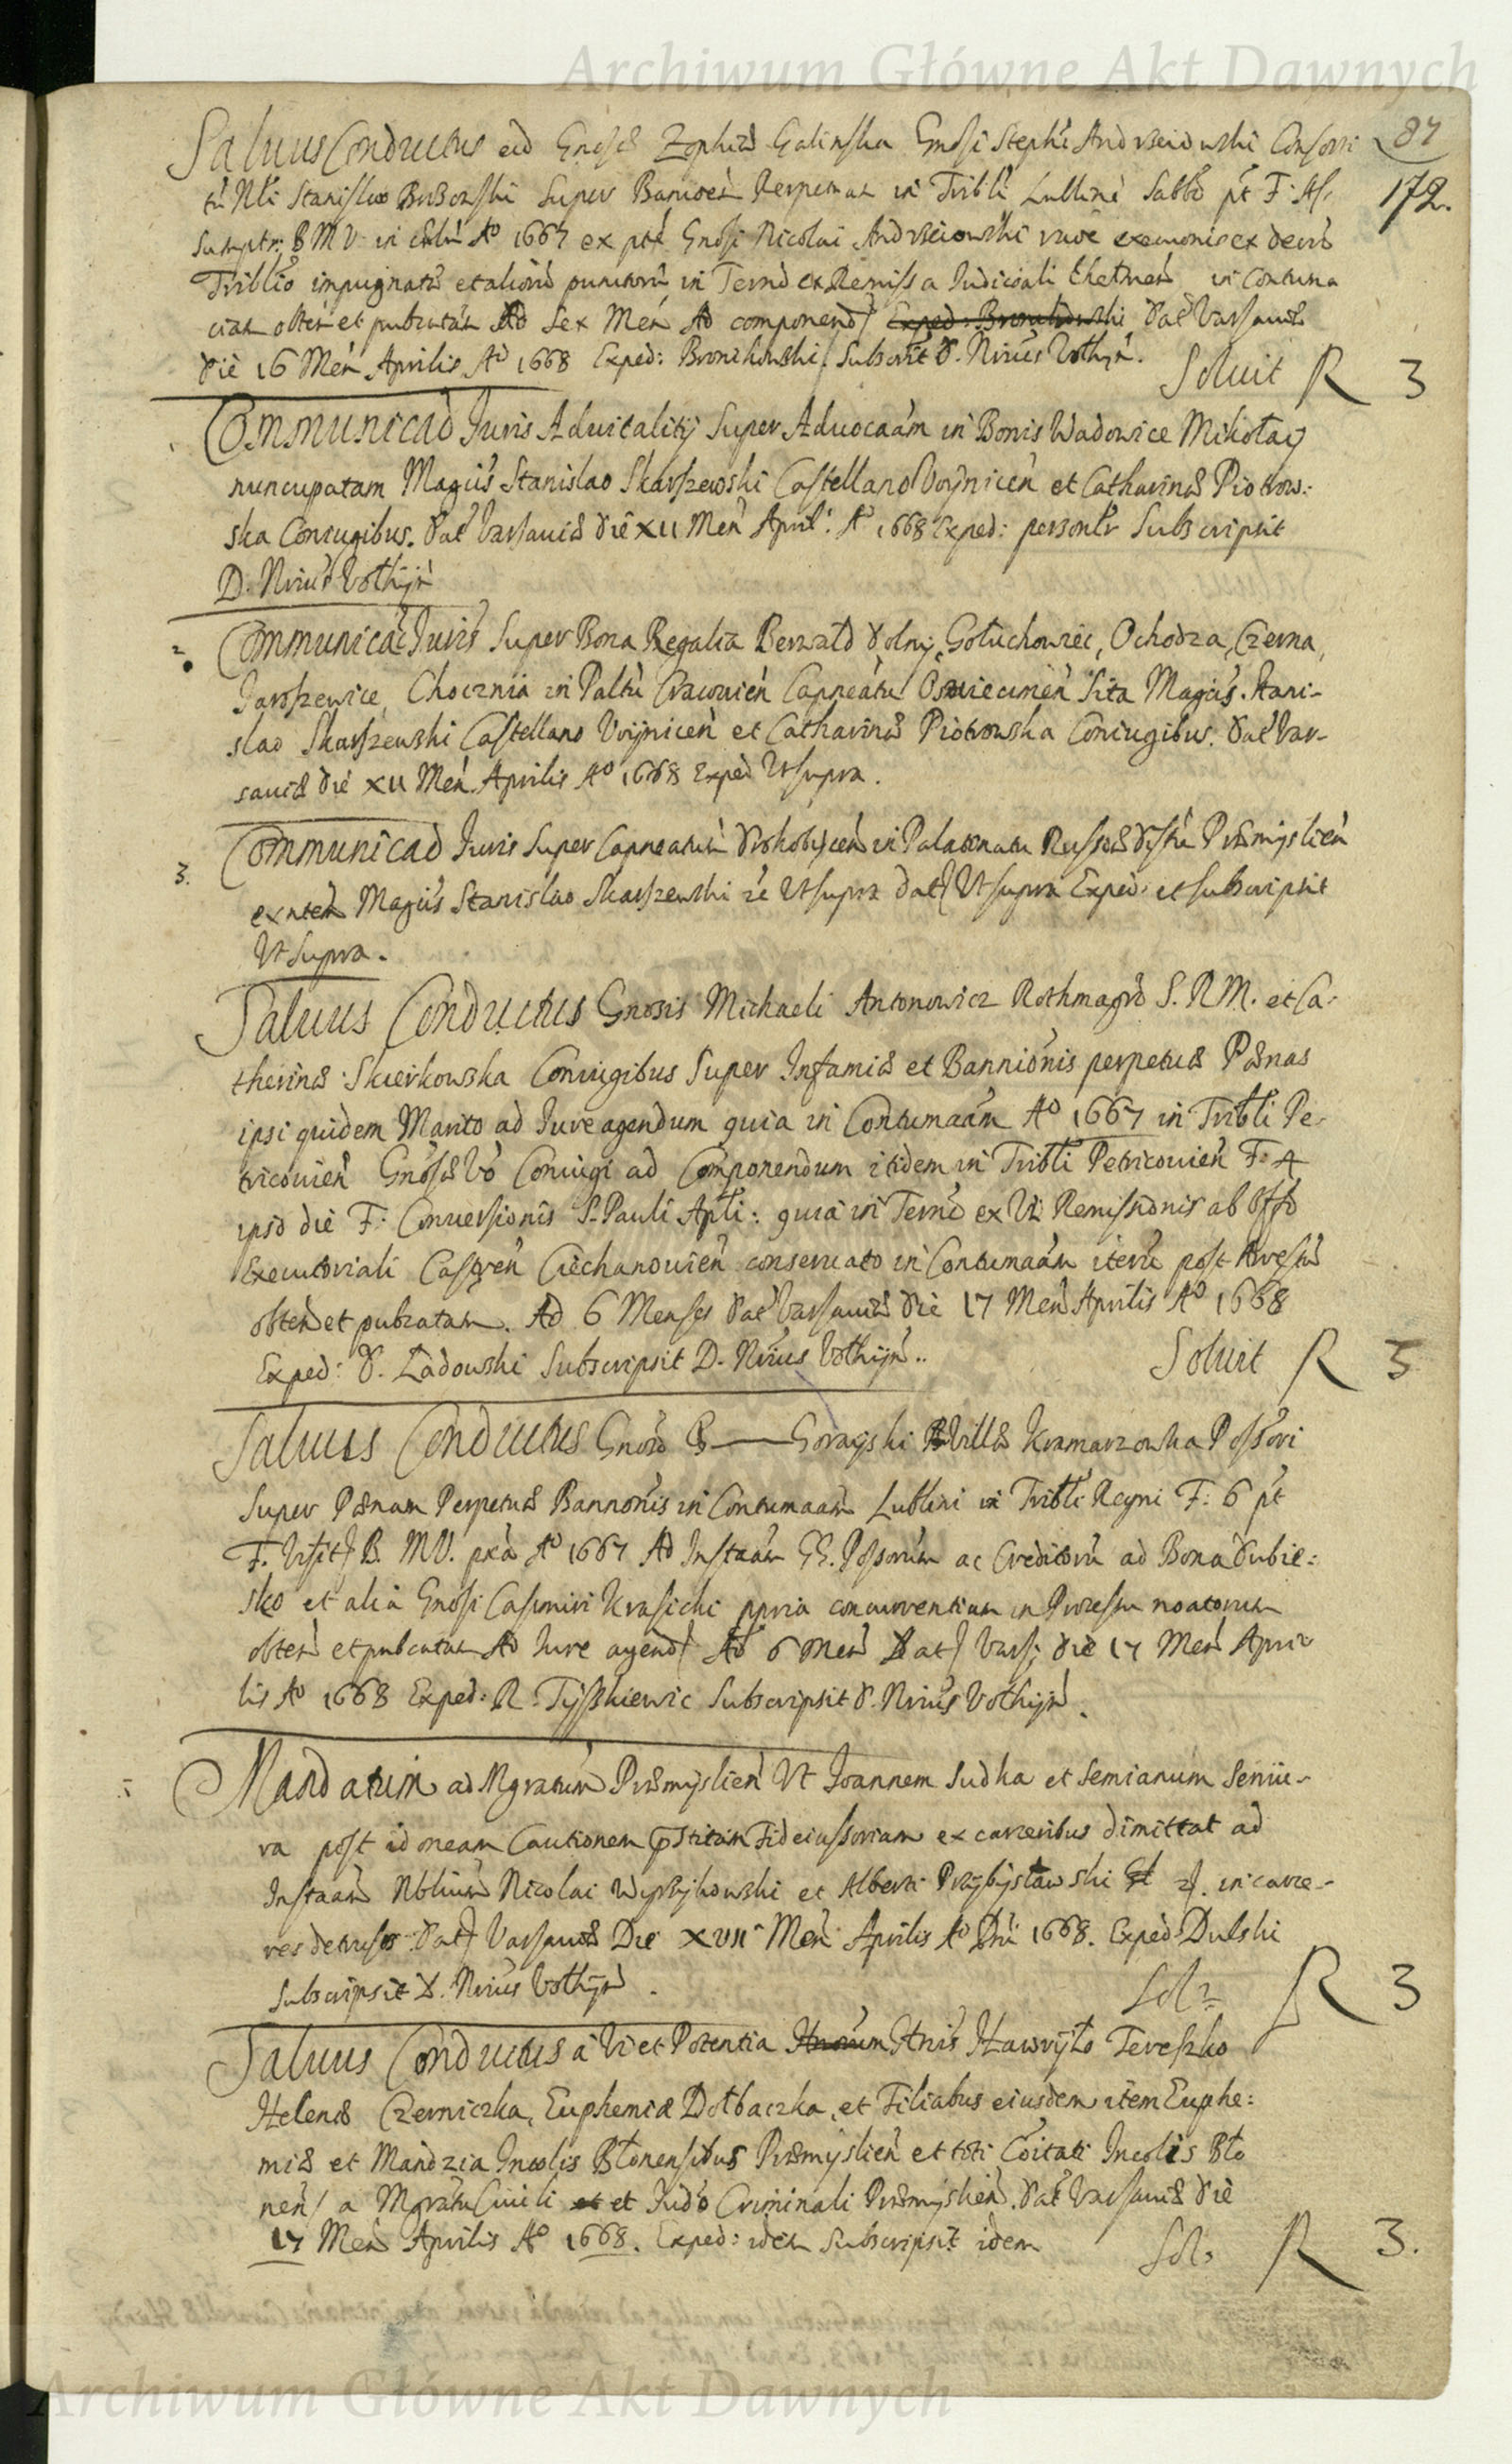 Archiwum Główne Akt Dawnych
87
172.
Saluus Conductus Zophiæ Galinska Gnosi Steph Consorti
Nli Stanislao Super Perpetuam in Tribli Lublini Sabbo pt F: As:
B M V Ao 1667 ex pte Gnosi Nicolai
impugnatæ in Termo ex Remissa Iudiciali in Contuma
ciam et Ad Sex Men Ad componend Exped: Dat Varsauiæ
die 16 Men Aprilis Ao 1668 Exped: Bronikowski Subscrit D. Nrius Vothÿn.
Soluit R 3
Communicao Iuris Aduitalitÿ Super Aduocaam in Bonis Wadowice Mikołaÿ
nuncupatam Magcis Stanislao Skarszewski Castellano Voÿnicen et Catharinæ Piotrow:
ska Coniugibus. Dat Varsauiæ die XII Men April: Ao 1668 Exped: personlr Subscripsit
D. Nrius Vothÿn
2. Communicao Iuris Super Bona Regalia Berwałd dolnÿ, Gołuchowiec, Ochodza, Czerna,
Jaroszewice, Chocznia in Paltu Cracouien Capneatu Oswiecimen Sita Magcis Stani-
slao Skarszewski Castellano Voÿnicen et Catharinæ Piotrowska Coniugibus. Dat Var-
sauiæ die XII Men Aprilis Ao 1668 Exped Ut supra.
3. Communicao Iuris Super Capneatum Drohobÿcen in Palatinatu Russiæ Præmÿslien
exnten Magcis Stanislao Skarszewski Ut supra dat Ut supra Exped: et subscripsit
Ut Supra.
Saluus Conductus Gnosis Michaeli Antonowicz Rothmagro S. R M. et Ca-
therinæ Skierkowska Coniugibus Super Infamiæ et Bannionis perpetuæ Pænas
ipsi quidem Marito ad Iure agendum quia in Contumaam Ao 1667 in Tribli Pe-
tricouien Gnosæ Vo Coniugi ad Componendum itidem in Tribli Petricouien F: 4
ipso die F: Conuersionis S. Pauli Apli: quia in Termo ex Vi Remissionis ab Offo
Executoriali Castren Ciechanouien conseruato in Contumaam iteru post Arestu
obten et publratam. Ad 6 Menses Dat Varsauiæ die 17 Men Aprilis Ao 1668
Exped: D. Ładowski Subscripsit D. Nrius Vothÿn..
Soluit R 3
Saluus Conductus Gnoso G—— Goraÿski Villæ Kramarzowka Possori
Super Pænam Perpetuæ Bannonis in Contumaam Lublini in Tribli Regni F: 6 pt
F. Visit B. MV. Ao 1667 Ad Instaam GG. Possorum ac Creditoru ad Bona Dubie:
sko et alia Gnosi Casimiri Krasicki ppria concurrentium in Processu noatorum
obten et publcatam Ad Iure agend Ad 6 Men Dat Vars: die 17 Men Apri-
lis Ao 1668 Exped: R. Tÿszkiewic Subscripsit D. Nrius Vothÿn.
Mandatum ad Mgratum Præmÿslien Ut Joannem Sudka et Semianum
post idoneam Cautionem Fideiussoriam ex carceribus dimittat ad
Instaam Nblium Nicolai Wÿrzÿkowski et Alberti Przÿbÿsławski in carce-
res detrusos Dat Varsauiæ Die XVII Men Aprilis Ao Dni 1668. Exped: Dulski
Subscripsit D. Nrius Vothÿn.
Sol R 3
Saluus Conductus a Vi et Potentia Hawrÿło Tereszko
Helenæ Czerniczka, Euphemiæ Dołbaczka, et Filiabus eiusdem item Euphe:
miæ et Mandzia Incolis Błonensibus Præmÿslien et toti Coitati Incolis Bło
nen a Mgratu Ciuili et et Iudo Criminali Præmÿslien. Dat Varsauiæ die
17 Men Aprilis Ao 1668. Exped: idem Subscripsit idem
Sol: R 3.
Archiwum Główne Akt Dawnych